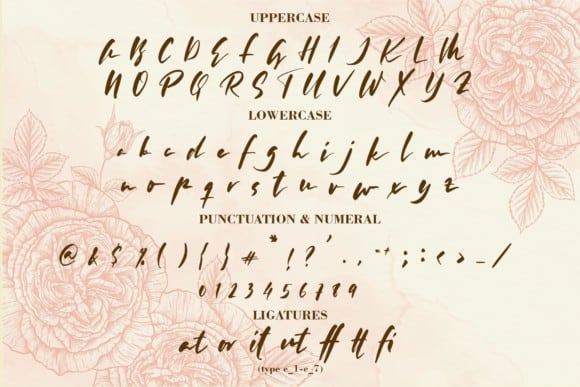 UPPERCASE
A B C D E F G H I J K L M
N O P Q R S T U V W X Y Z
LOWERCASE
a b c d e f g h i j k l m
n o p q r s t u v w x y z
PUNCTUATION & NUMERAL
@ & $ % ( ) { } # * ! ? ' . , " " ; : < > _ /
0 1 2 3 4 5 6 7 8 9
LIGATURES
at or it rt ff tt fi
(type e_1-e_7)